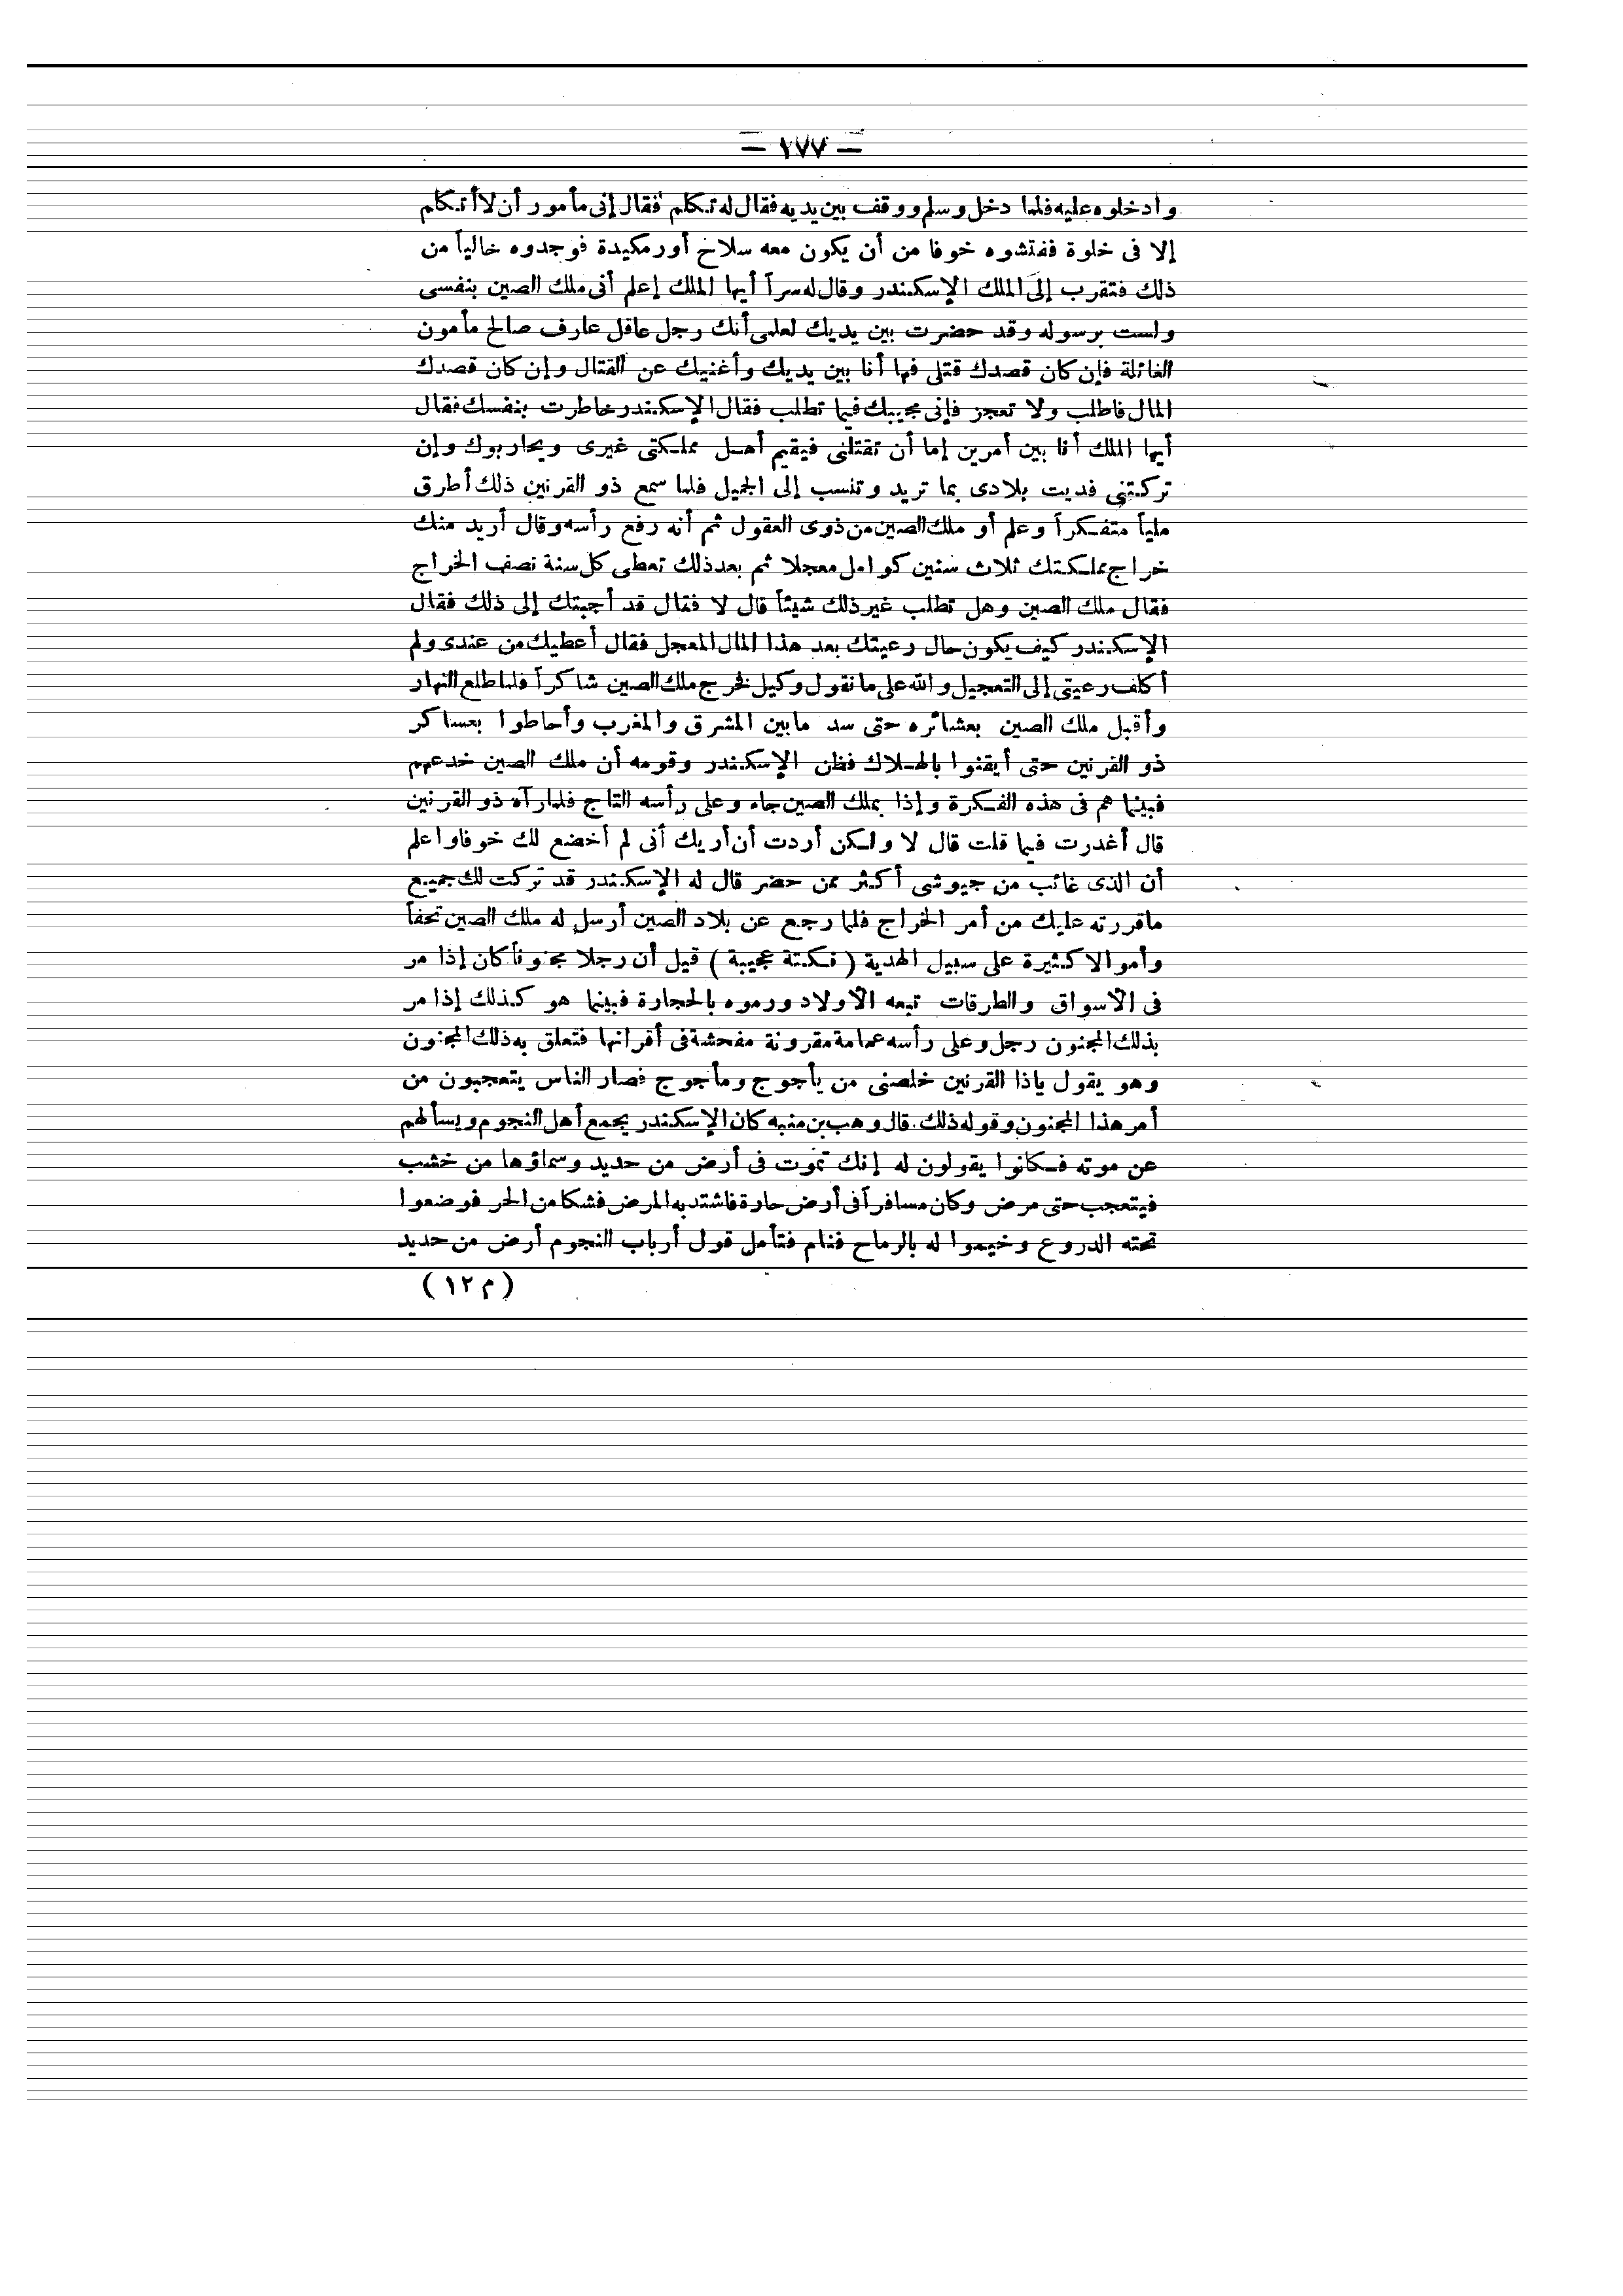 — ١٧٧ —
وأدخلوه عليه فلما دخل وسلم ووقف بين يديه فقال له تكلم فقال إنى مأمور أن لا أتكلم
إلا فى خلوة ففتشوه خوفا من أن يكون معه سلاح أو رمكيدة فوجدوه خالياً من
ذلك فتقرب إلى الملك الإسكندر وقال له سراً أيها الملك إعلم أنى ملك الصين بنفسى
ولست برسوله وقد حضرت بين يديك لعلمى أنك رجل عاقل عارف صالح مأمون
الغائلة فإن كان قصدك قتلى فها أنا بين يديك وأغنيك عن القتال وإن كان قصدك
المال فاطلب ولا تعجز فإنى مجيبك فيما تطلب فقال الإسكندر خاطرت بنفسك فقال
أيها الملك أنا بين أمرين إما أن تقتلنى فيقيم أهل مملكتى غيرى ويحاربوك وإن
تركتنى فديت بلادى بما تريد وتنسب إلى الجميل فلما سمع ذو القرنين ذلك أطرق
ملياً متفكراً وعلم أو ملك الصين من ذوى العقول ثم أنه رفع رأسه وقال أريد منك
خراج مملكتك ثلاث سنين كوامل معجلا ثم بعد ذلك تعطى كل سنة نصف الخراج
فقال ملك الصين وهل تطلب غير ذلك شيئاً قال لا فقال قد أجبتك إلى ذلك فقال
الإسكندر كيف يكون حال رعيتك بعد هذا المال المعجل فقال أعطيك من عندى ولم
أكلف رعيتى إلى التعجيل والله على ما نقول وكيل فخرج ملك الصين شاكراً فلما طلع النهار
وأقبل ملك الصين بعشائره حتى سد مابين المشرق والمغرب وأحاطوا بعساكر
ذو القرنين حتى أيقنوا بالهلاك فظن الإسكندر وقومه أن ملك الصين خدعهم
فبينما هم فى هذه الفكرة وإذا بملك الصين جاء وعلى رأسه التاج فلما رآه ذو القرنين
قال أغدرت فيما قلت قال لا ولكن أردت أن أريك أنى لم أخضع لك خوفا واعلم
أن الذى غائب من جيوشى أكثر ممن حضر قال له الإسكندر قد تركت لك جميع
ماقررته عليك من أمر الخراج فلما رجع عن بلاد الصين أرسل له ملك الصين تحفاً
وأموالا كثيرة على سبيل الهدية ( نكتة عجيبة ) قيل أن رجلا مجنوناً كان إذا مر
فى الأسواق والطرقات تبعه الأولاد ورموه بالحجارة فبينما هو كذلك إذا مر
بذلك المجنون رجل وعلى رأسه عمامة مقرونة مفحشة فى أقرانها فتعلق به ذلك المجنون
وهو يقول ياذا القرنين خلصنى من يأجوج ومأجوج فصار الناس يتعجبون من
أمر هذا المجنون وقوله ذلك . قال وهب بن منبه كان الإسكندر يجمع أهل النجوم ويسألهم
عن موته فكانوا يقولون له إنك تموت فى أرض من حديد وسماؤها من خشب
فيتعجب حتى مرض وكان مسافراً فى أرض حارة فاشتد به المرض فشكا من الحر فوضعوا
تحته الدروع وخيموا له بالرماح فنام فتأمل قول أرباب النجوم أرض من حديد
( م ١٢ )